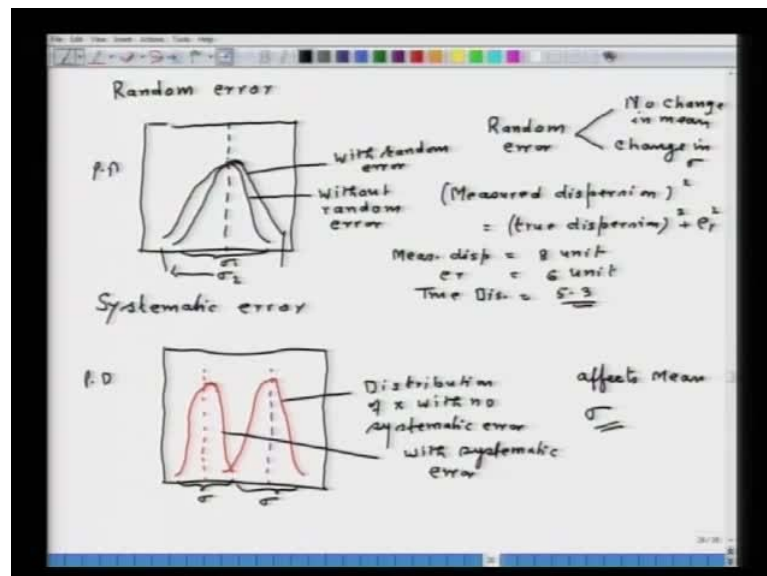 Random error
P.D
with random
error
Without
random
error
σ1
σ2
Random
error
No change
in mean
change in
σ
(Measured dispersion)²
= (true dispersion)² + er²
Meas. disp = 8 unit
er = 6 unit
True Dis. = 5.3
Systematic error
P.D
Distribution
of x with no
systematic error
with systematic
error
σ
σ
affects Mean
σ